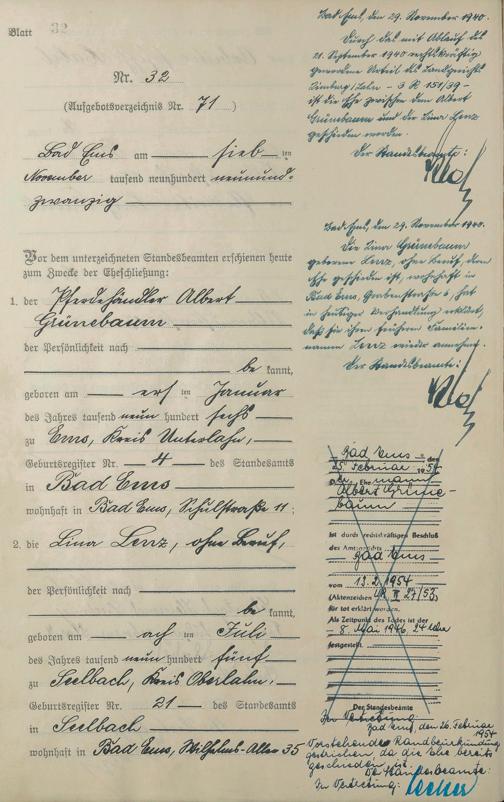 Blatt 32
Nr. 32
(Aufgebotsverzeichnis Nr. 71)
Bad Ems am sieb ten
November tausend neunhundert neunund-
zwanzig
Vor dem unterzeichneten Standesbeamten erschienen heute
zum Zwecke der Eheschließung:
1. der Pferdehändler Albert
Grünebaum
der Persönlichkeit nach
be kannt,
geboren am ers ten Januar
des Jahres tausend neun hundert sechs
zu Ems, Kreis Unterlahn,
Geburtsregister Nr. 4 des Standesamts
in Bad Ems
wohnhaft in Bad Ems, Schulstraße 11;
2. die Lina Lenz, ohne Beruf,
der Persönlichkeit nach
be kannt,
geboren am ach ten Juli
des Jahres tausend neun hundert fünf
zu Seelbach, Kreis Oberlahn,
Geburtsregister Nr. 21 des Standesamts
in Seelbach
wohnhaft in Bad Ems, Wilhelms-Allee 35
Bad Ems, den 29. November 1940.
Durch das mit Ablauf des
21. September 1940 rechtskräftig
gewordene Urteil des Landgerichts
Limburg/Lahn - 3 R 151/39 -
ist die Ehe zwischen dem Albert
Grünebaum und der Lina Lenz
geschieden worden.
Der Standesbeamte:
Bad Ems, den 29. November 1940.
Die Lina Grünebaum
geborene Lenz, ohne Beruf, deren
Ehe geschieden ist, wohnhaft in
Bad Ems, Grabenstraße 6, hat
in heutiger Verhandlung erklärt,
daß sie ihren früheren Familien-
namen Lenz wieder annehme.
Der Standesbeamte:
Bad Ems den
25. Februar 1954
Der Ehemann
Albert Grüne-
baum
ist durch rechtskräftigen Beschluß
des Amtsgerichts
Bad Ems
vom 13.2.1954
(Aktenzeichen UR II 27/53)
für tot erklärt worden.
Als Zeitpunkt des Todes ist der
8. Mai 1946, 24 Uhr
festgestellt.
Der Standesbeamte
In Vertretung
Bad Ems, den 26. Februar
1954
Vorstehende Randbeurkundung
gestrichen da die Ehe bereits
geschieden ist.
Der Standesbeamte:
In Vertretung: